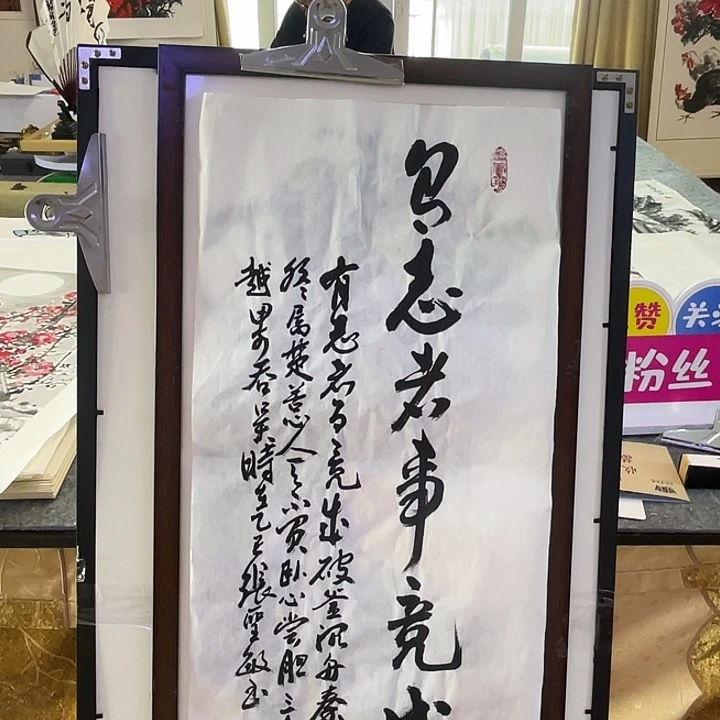 有志者事竟成
有志者事竟成破釜沉舟秦
终属楚苦心人天不负卧心尝胆三
越甲可吞吴時在乙巳張聖敏书
赞
关
粉丝